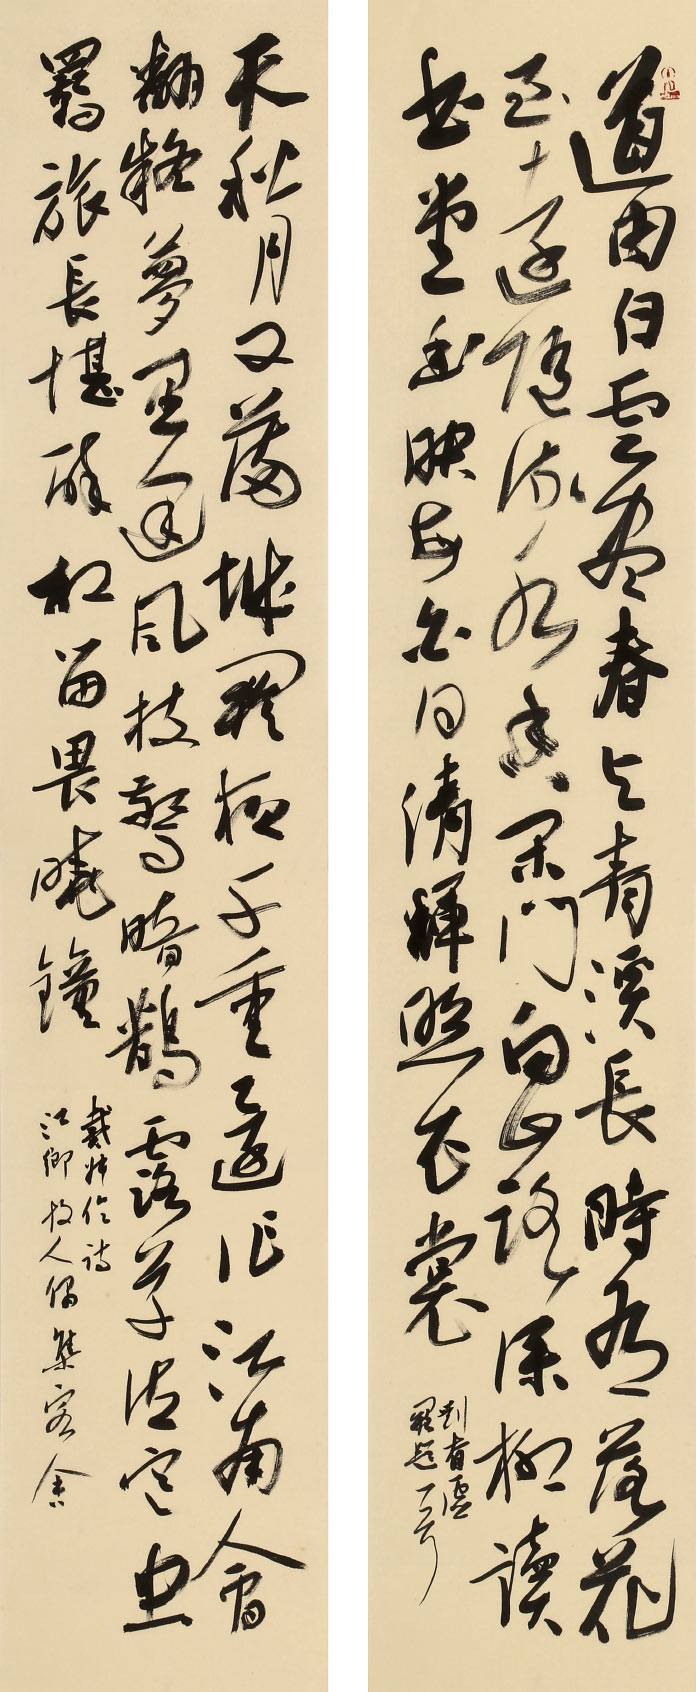 道由白雲盡春与青溪長時有落花
至遠隨流水香閑門向山路深柳讀
書堂幽映每白日清輝照衣裳
劉眘虛
闕題一首
天秋月又滿城闕夜千重還作江南會
翻疑夢里逢風枝驚暗鵲露草泣寒虫
羈旅長堪醉相留畏曉鐘
戴叔倫詩
江鄉故人偶集客舍